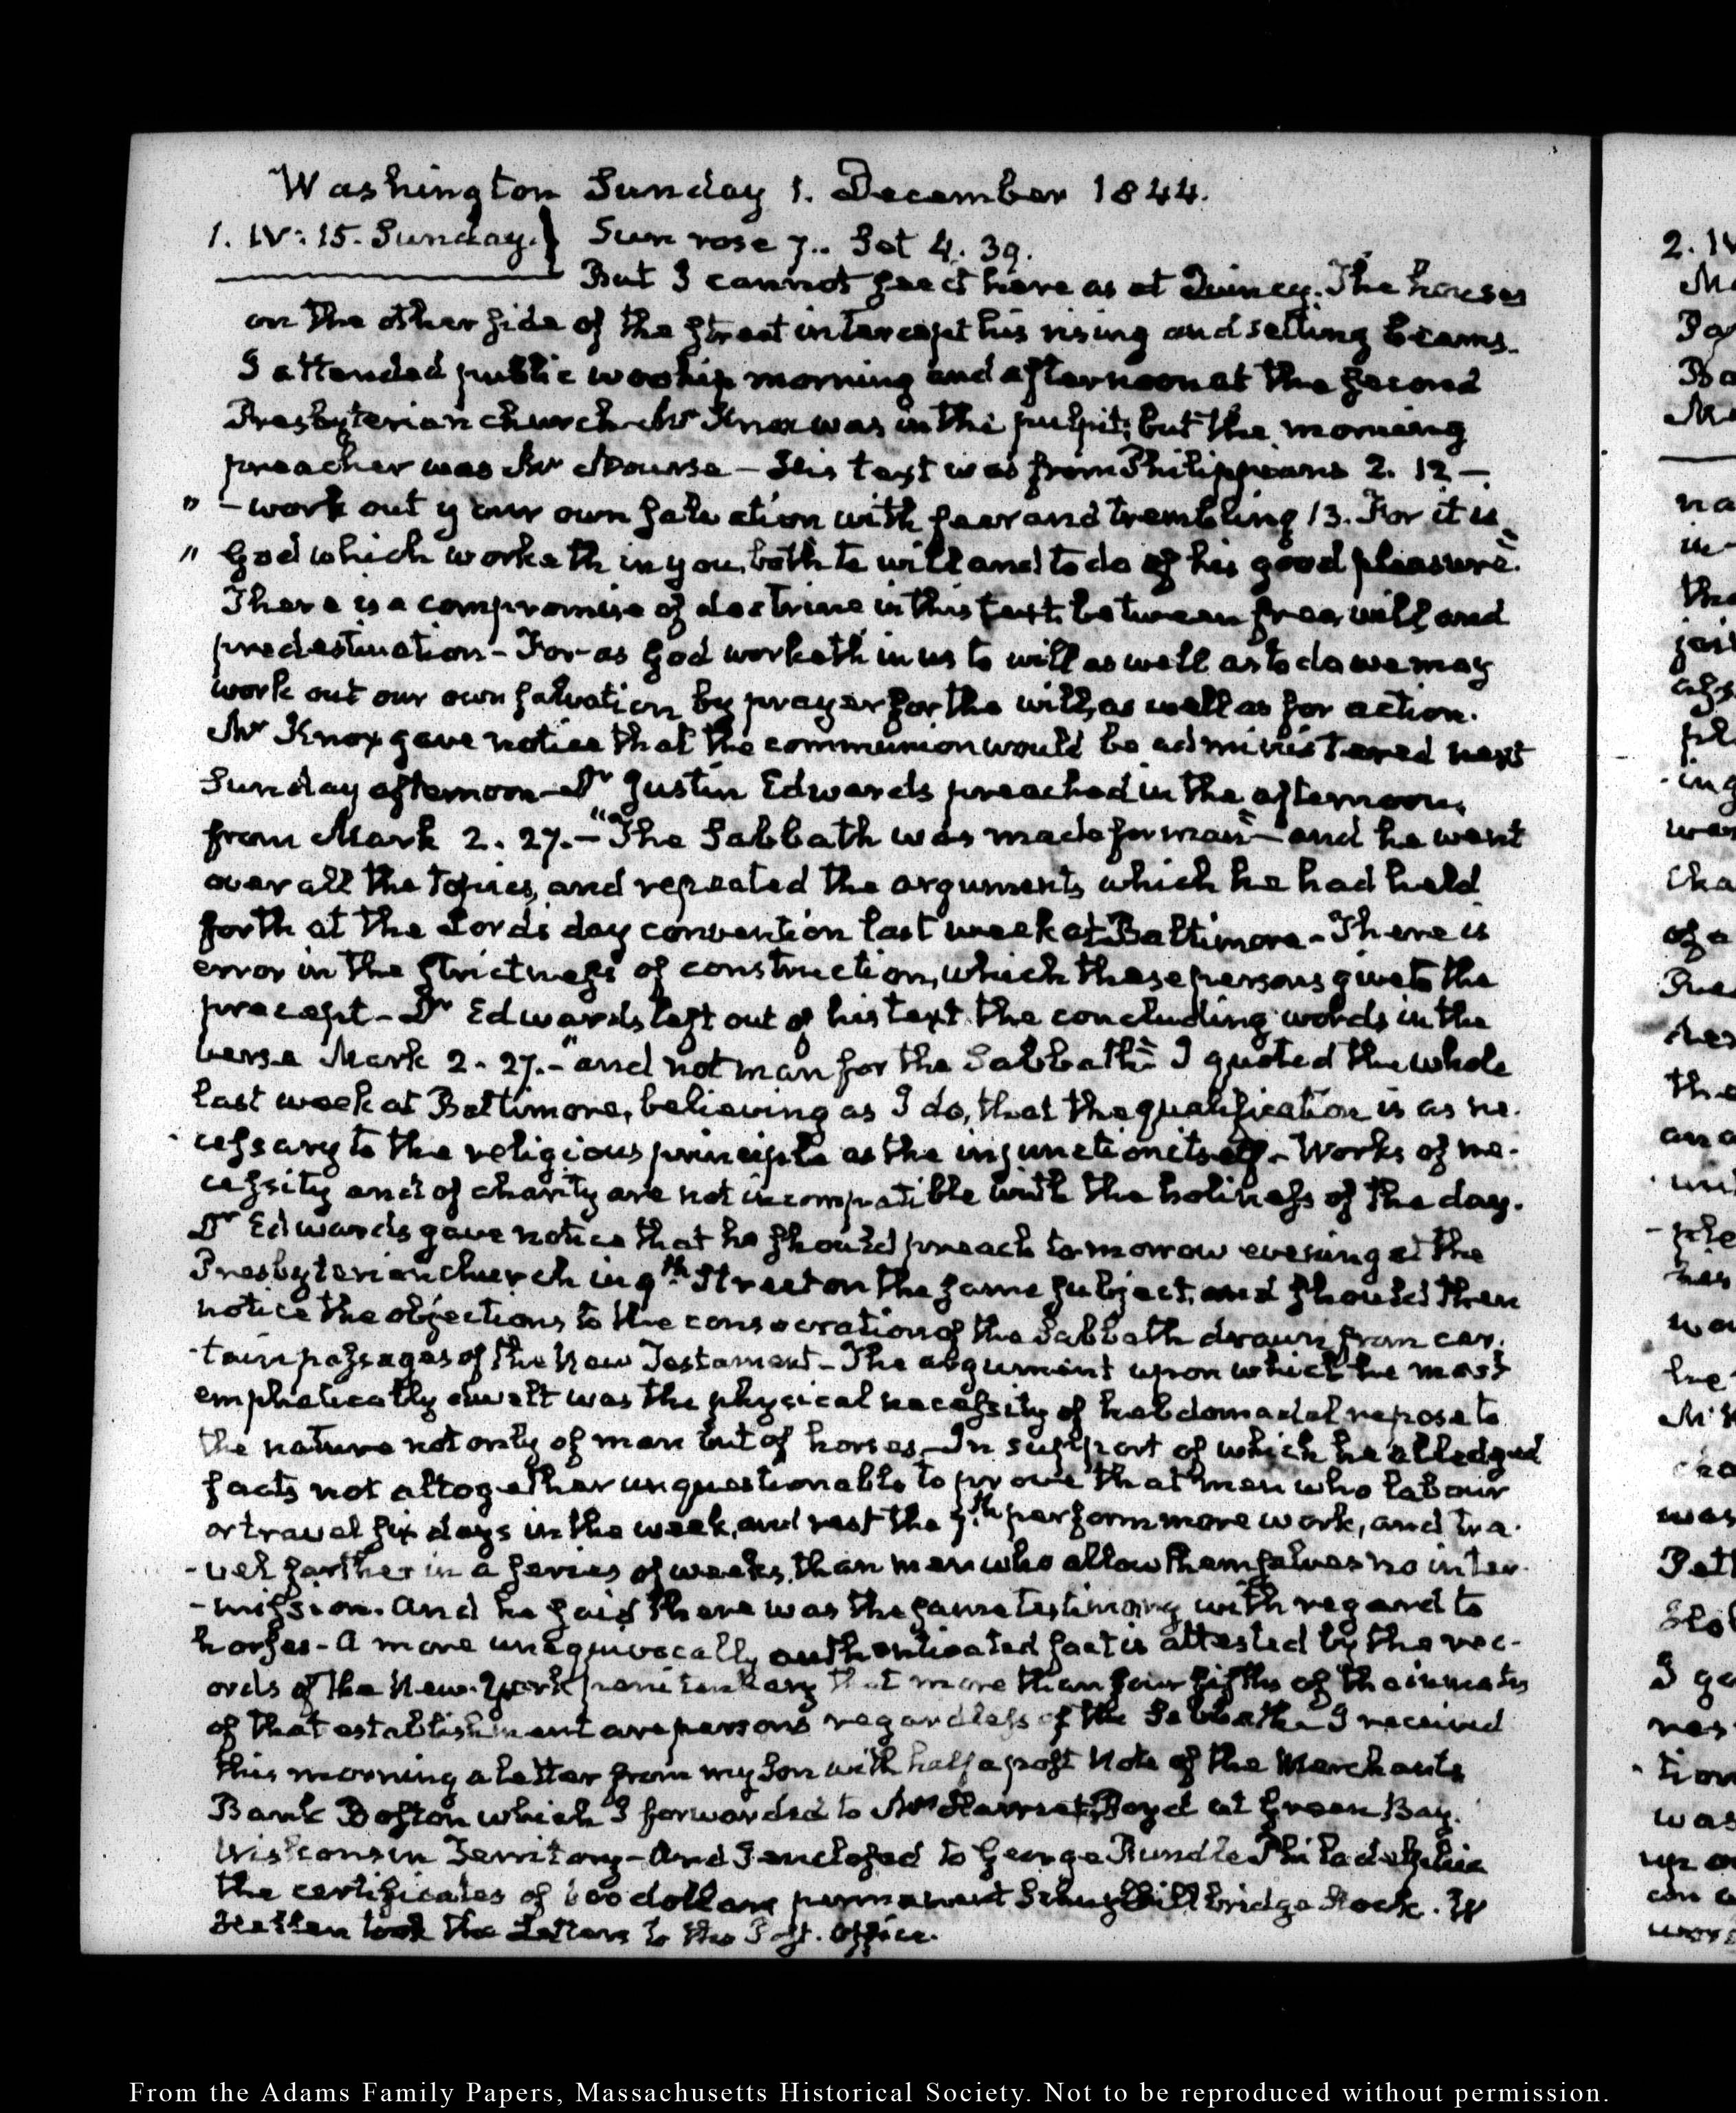 Washington Sunday 1. December 1844.
1. IV: 15. Sunday. } Sun rose 7.. Set 4. 39.
But I cannot see it here as at Quincy. The houses
on the other side of the street intercept his rising and setting beams.
I attended public worship morning and afternoon at the second
Presbyterian church Mr Knox was in the pulpit; but the morning
preacher was Mr Nourse – His text was from Philippians 2. 12 –
" – work out your own salvation with fear and trembling 13. For it is
" God which worketh in you, both to will and to do of his good pleasure."
There is a compromise of doctrine in this text between free will, and
predestination – For as God worketh in us to will as well as to do we may
work out our own salvation by prayer for the will, as well as for action.
Mr Knox gave notice that the communion would be administered next
Sunday afternoon – Dr Justin Edwards preached in the afternoon,
from Mark 2. 27. – "The Sabbath was made for man" – and he went
over all the topics, and repeated the arguments which he had held
forth at the Lord's day convention last week at Baltimore – There is
error in the strictness of construction, which these persons give to the
precept – Dr Edwards left out of his text the concluding words in the
verse Mark 2. 27. – "and not man for the Sabbath" I quoted the whole
last week at Baltimore, believing as I do, that the qualification is as ne-
cessary to the religious principle as the injunction itself – Works of ne-
cessity and of charity are not incompatible with the holiness of the day.
Dr Edwards gave notice that he should preach to-morrow evening at the
Presbyterian church in 9th Street on the same subject, and should then
notice the objections to the consecration of the Sabbath drawn from cer-
-tain passages of the New Testament – The argument upon which he most
emphatically dwelt was the physical necessity of hebdomadal repose to
the nature not only of man but of horses – In support of which he alledged
facts not altogether unquestionable to prove that men who labour
or travel six days in the week, and rest the 7th perform more work, and tra-
-vel farther in a series of weeks, than men who allow themselves no inter-
-mission. And he said there was the same testimony with regard to
horses – A more unequivocally authenticated fact is attested by the rec-
ords of the New-York penitentiary that more than four fifths of the inmates
of that establishment are persons regardless of the Sabbath – I received
this morning a letter from my Son with half a post Note of the Merchants
Bank Boston which I forwarded to Mrs Harriet Boyd at Green Bay.
Wisconsin Territory – And I enclosed to George Rundle Philadelphia
the certificates of 600 dollars permanent Schuylkill bridge Stock. W
took the Letters to the Post. Office.
2. IV